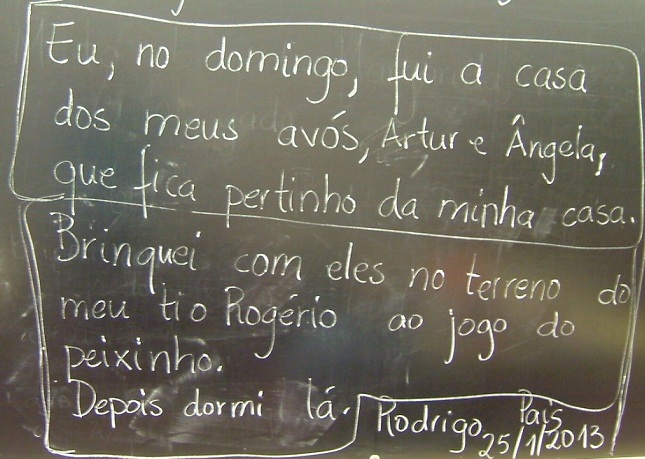 Eu, no domingo, fui a casa
dos meus avós, Artur e Ângela,
que fica pertinho da minha casa.
Brinquei com eles no terreno do
meu tio Rogério ao jogo do
peixinho.
Depois dormi lá.
Rodrigo Pais
25/1/2013